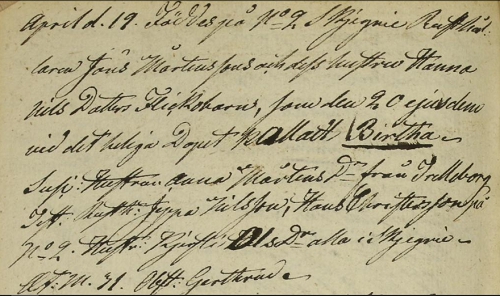 April d. 19. Föddes på No 9 Skjegrie Rusthål:
laren Jöns Mårtensson och dess hustru Hanna
Nils Dotters Flickobarn, som den 20 ejusdem
vid det heliga Dopet kallades Birtha.
Susc: Hustrun Anna Mårtens Dr från Trelleborg
Test: Rusth: Jeppa Nilsson, Hans Christensson på
No 9. Hustr: Kjersti Ols Dr alla i Skjegrie
Æt: M. 31. Obst: Gerthrud